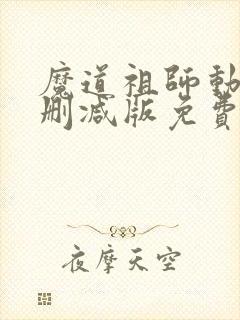 魔道祖師動
刪減版免費
夜摩天空